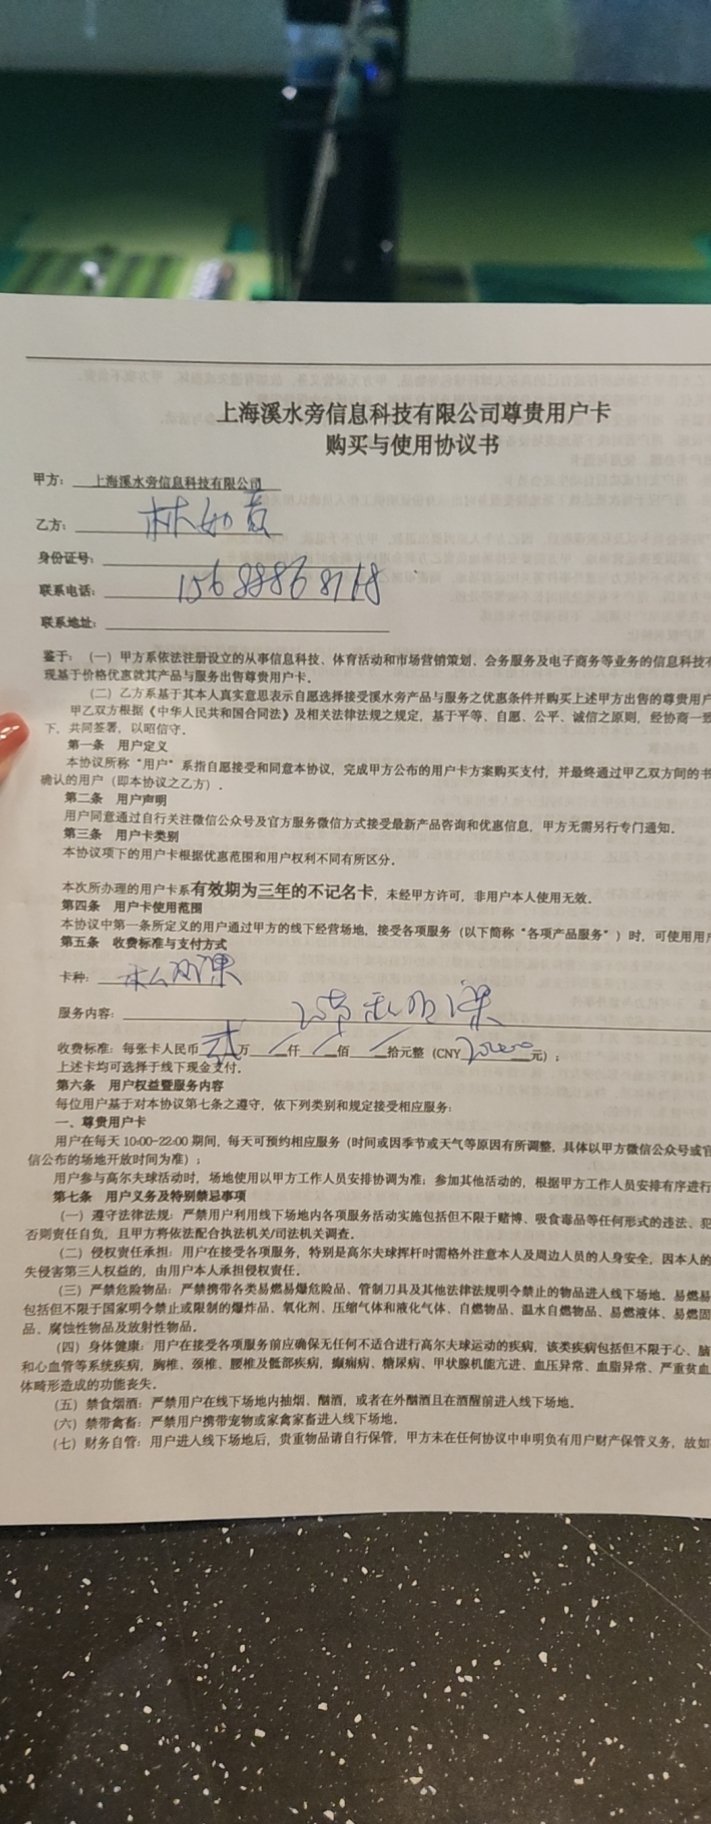 上海溪水旁信息科技有限公司尊贵用户卡
购买与使用协议书
甲方：上海溪水旁信息科技有限公司
乙方：林如意
身份证号：
联系电话：
联系地址：
鉴于：（一）甲方系依法注册设立的从事信息科技、体育活动和市场营销策划、会务服务及电子商务等业务的信息科技有
现基于价格优惠就其产品与服务出售尊贵用户卡。
（二）乙方系基于其本人真实意思表示自愿选择接受溪水旁产品与服务之优惠条件并购买上述甲方出售的尊贵用户
甲乙双方根据《中华人民共和国合同法》及相关法律法规之规定，基于平等、自愿、公平、诚信之原则，经协商一致
下，共同签署，以昭信守。
第一条 用户定义
本协议所称“用户”系指自愿接受和同意本协议，完成甲方公布的用户卡方案购买支付，并最终通过甲乙双方间的书
确认的用户（即本协议之乙方）。
第二条 用户声明
用户同意通过自行关注微信公众号及官方服务微信方式接受最新产品咨询和优惠信息，甲方无需另行专门通知。
第三条 用户卡类别
本协议项下的用户卡根据优惠范围和用户权利不同有所区分。
本次所办理的用户卡系有效期为三年的不记名卡，未经甲方许可，非用户本人使用无效。
第四条 用户卡使用范围
本协议中第一条所定义的用户通过甲方的线下经营场地，接受各项服务（以下简称“各项产品服务”）时，可使用用户
第五条 收费标准与支付方式
卡种：私教课
服务内容：
收费标准：每张卡人民币贰万 仟 佰 拾元整（CNY 20000元）；
上述卡均可选择于线下现金支付。
第六条 用户权益暨服务内容
每位用户基于对本协议第七条之遵守，依下列类别和规定接受相应服务：
一、尊贵用户卡
用户在每天 10:00-22:00 期间，每天可预约相应服务（时间或因季节或天气等原因有所调整，具体以甲方微信公众号或官
信公布的场地开放时间为准）；
用户参与高尔夫球活动时，场地使用以甲方工作人员安排协调为准；参加其他活动的，根据甲方工作人员安排有序进行
第七条 用户义务及特别禁忌事项
（一）遵守法律法规：严禁用户利用线下场地内各项服务活动实施包括但不限于赌博、吸食毒品等任何形式的违法、犯
否则责任自负，且甲方将依法配合执法机关/司法机关调查。
（二）侵权责任承担：用户在接受各项服务，特别是高尔夫球挥杆时需格外注意本人及周边人员的人身安全，因本人的
失侵害第三人权益的，由用户本人承担侵权责任。
（三）严禁危险物品：严禁携带各类易燃易爆危险品、管制刀具及其他法律法规明令禁止的物品进入线下场地。易燃易
包括但不限于国家明令禁止或限制的爆炸品、氧化剂、压缩气体和液化气体、自燃物品、温水自燃物品、易燃液体、易燃固
品、腐蚀性物品及放射性物品。
（四）身体健康：用户在接受各项服务前应确保无任何不适合进行高尔夫球运动的疾病，该类疾病包括但不限于心、脑
和心血管等系统疾病，胸椎、颈椎、腰椎及骶部疾病，癫痫病、糖尿病、甲状腺机能亢进、血压异常、血脂异常、严重贫血
体畸形造成的功能丧失。
（五）禁食烟酒：严禁用户在线下场地内抽烟、酗酒，或者在外酗酒且在酒醒前进入线下场地。
（六）禁带禽畜：严禁用户携带宠物或家禽家畜进入线下场地。
（七）财务自管：用户进入线下场地后，贵重物品请自行保管，甲方未在任何协议中申明负有用户财产保管义务，故如